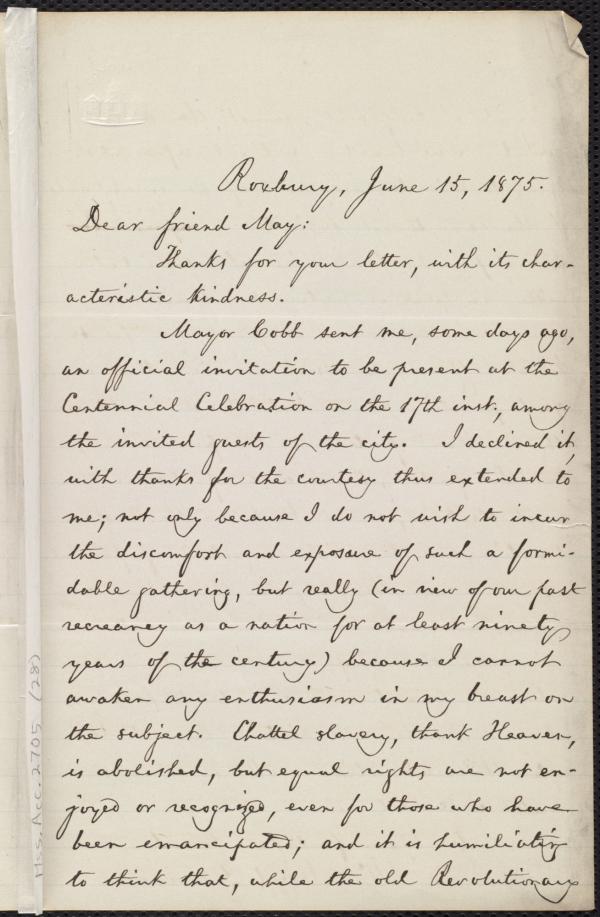 Roxbury, June 15, 1875.
Dear friend May:
Thanks for your letter, with its char-
acteristic kindness.
Mayor Cobb sent me, some days ago,
an official invitation to be present at the
Centennial Celebration on the 17th inst., among
the invited guests of the city. I declined it,
with thanks for the courtesy thus extended to
me; not only because I do not wish to incur
the discomfort and exposure of such a formi-
dable gathering, but really (in view of our past
recreancy as a nation for at least ninety
years of the century) because I cannot
awaken any enthusiasm in my breast on
the subject. Chattel slavery, thank Heaven,
is abolished, but equal rights are not en-
joyed or recognized, even for those who have
been emancipated; and it is humiliating
to think that, while the old Revolutionary
Mss. Acc. 2705 (28)